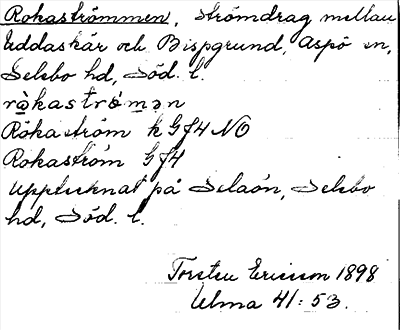 Rokaströmmen, strömdrag mellan
Uddaskär och Bispgrund, Aspö sn,
Selebo hd, Söd. l.
råkaströ́mən
Röka ström k Gf4 NO
Rokaström Gf4
Upptecknat på Selaön, Selebo
hd, Söd. l.
Torsten Ericsson 1898
Ulma 41:53.